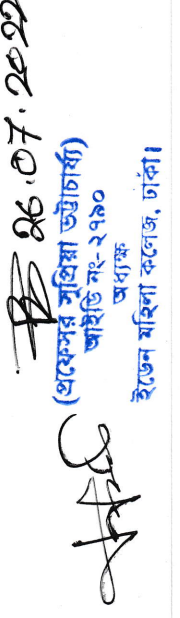 26.07.2022
(প্রফেসর সুপ্রিয়া ভট্টাচার্য্য)
আইডি নং- ২৭৯০
অধ্যক্ষ
ইডেন মহিলা কলেজ, ঢাকা।